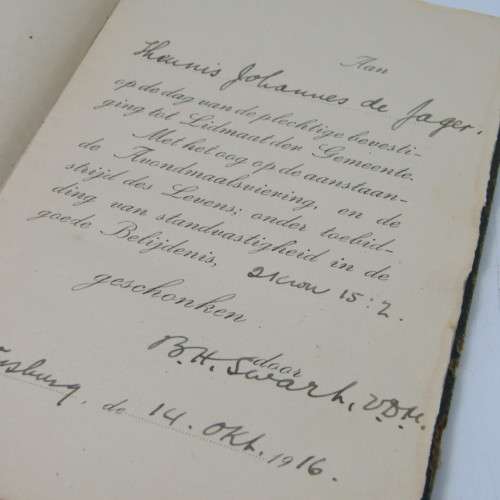 Aan
Theunis Johannes de Jager.
op de dag van de plechtige bevesti-
ging tot Lidmaat der Gemeente.
Met het oog op de aanstaan-
de Avondmaalsviering, en de
strijd des Levens; onder toebid-
ding van standvastigheid in de
goede Belijdenis, 2 Kron 15:7.
geschonken
door
B.H. Swarts, V.D.M.
de 14. Okt. 1916.